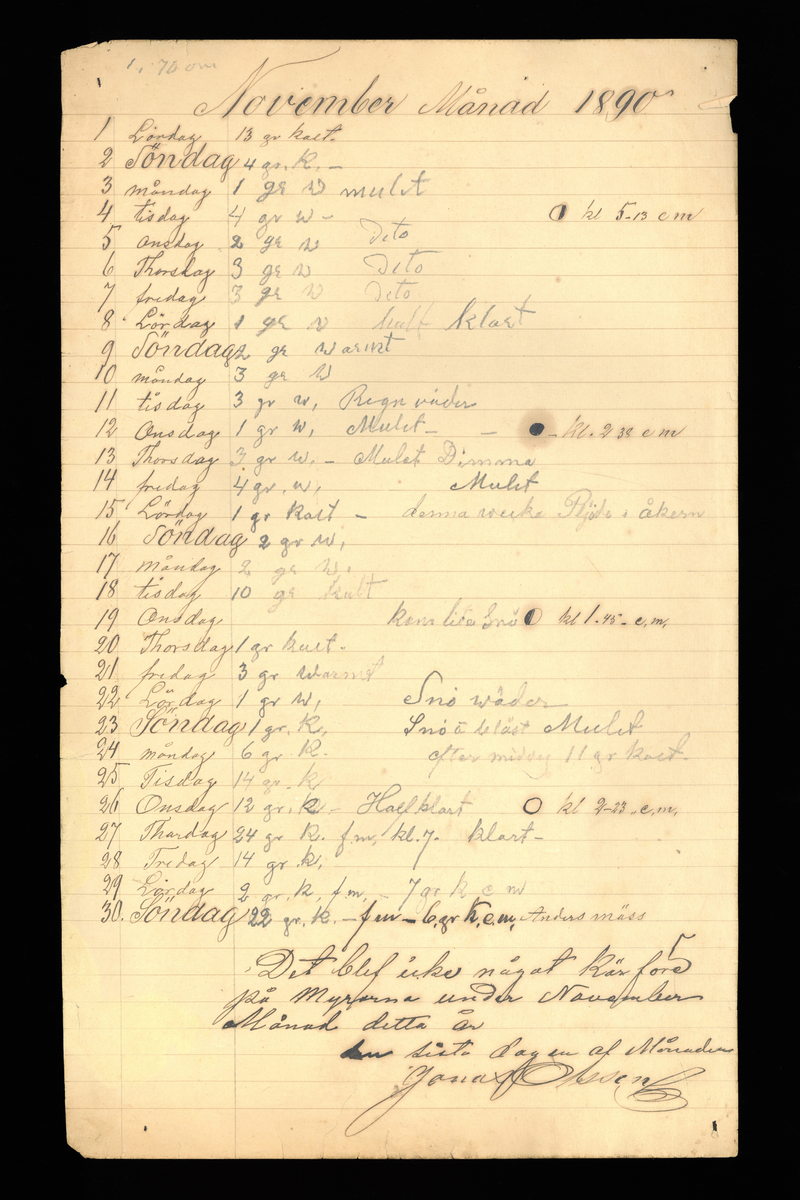 November Månad 1890
1 Lördag 13 gr kalt.
2 Söndag 4 gr. K. –
3 måndag 1 gr w mulet
4 tisdag 4 gr w – kl 5-13 e m
5 onsdag 2 gr w Deto
6 Thorsdag 3 gr w Deto
7 fredag 3 gr w Deto
8 Lördag 1 gr w half klart
9 Söndag 2 gr warmt
10 måndag 3 gr w
11 tisdag 3 gr w, Regn väder
12 Onsdag 1 gr w, Mulet – – kl. 2 38 e m
13 Thorsdag 3 gr w. – Mulet Dimma
14 fredag 4 gr. w, Mulet
15 Lördag 1 gr kalt – denna wecka Plöjde i åkern
16 Söndag 2 gr w,
17 måndag 2 gr w,
18 tisdag 10 gr kalt
19 Onsdag kom lite Snö kl 1-45- e.m.
20 Thorsdag 1 gr kalt.
21 fredag 3 gr warmt
22 Lördag 1 gr w, Snö wäder
23 Söndag 1 gr. K, Snö å blåst Mulet
24 måndag 6 gr K. efter middag 11 gr kalt.
25 Tisdag 14 gr. k
26 Onsdag 12 gr. k – Half klart kl 2-23 e.m.
27 Thordag 24 gr K. f.m, kl. 7. klart –
28 Fredag 14 gr. k,
29 Lördag 2 gr. k, f.m, – 7 gr k e m
30. Söndag 22 gr. K. – f m – 6, gr K, e.m, Anders mäss
Det blef icke något Kär före
på Myrorna under November
Månad detta år
den sista dagen af Månaden
Jonas Olssen